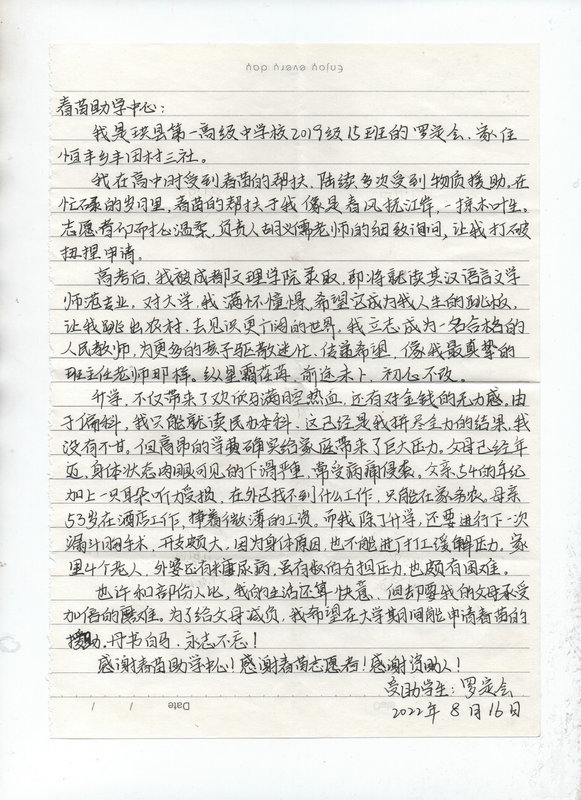 Enjoy every day
春苗助学中心：
我是珙县第一高级中学校2019级15班的罗定会，家住
恒丰乡丰田村三社。
我在高中时受到春苗的帮扶，陆续多次受到物质援助。在
忙碌的岁月里，春苗的帮扶于我像是春风抚江岸，一掠木叶生。
志愿者不不担心温絮，负责人胡义儒老师的细致询问，让我打破
扭捏申请。
高考后，我被成都文理学院录取，即将就读英汉语言文学
师范专业。对大学，我满怀憧憬，希望它成为我人生的跳板，
让我跳出农村，去见识更广阔的世界。我立志成为一名合格的
人民教师，为更多的孩子驱散迷忙、传第希望，像我最真挚的
班主任老师那样。纵星霜荏苒，前途未卜，初心不改。
升学，不仅带来了欢欣与满目热血，还有对金钱的无力感。由
于偏科，我只能就读民办本科，这已经是我拼尽全力的结果，我
没有不甘。但高昂的学费确实给家庭带来了巨大压力。父母已经年
迈，身体状态肉眼可见的下滑严重，常受病痛侵袭。父亲54的年纪
加上一只耳朵听力受损，在外已找不到什么工作，只能在家务农。母亲
53岁在酒店工作，挣着微薄的工资。而我除了升学，还要进行下一次
漏斗胸手术，开支颇大，因为身体原因，也不能进行打工缓解压力。家
里4个老人，外婆还有糖尿病，虽有叔伯分担压力，也颇有困难。
也许和部份人比，我的生活还算快意，但却要我的父母承受
加倍的磨难。为了给父母减负，我希望在大学期间能申请春苗的
援助，丹书白马，永志不忘！
感谢春苗助学中心！感谢春苗志愿者！感谢资助人！
受助学生：罗定会
2022年8月16日
Date / /